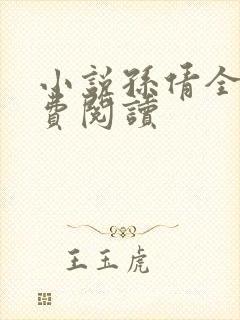 小說孫倩全
費閱讀
王玉虎